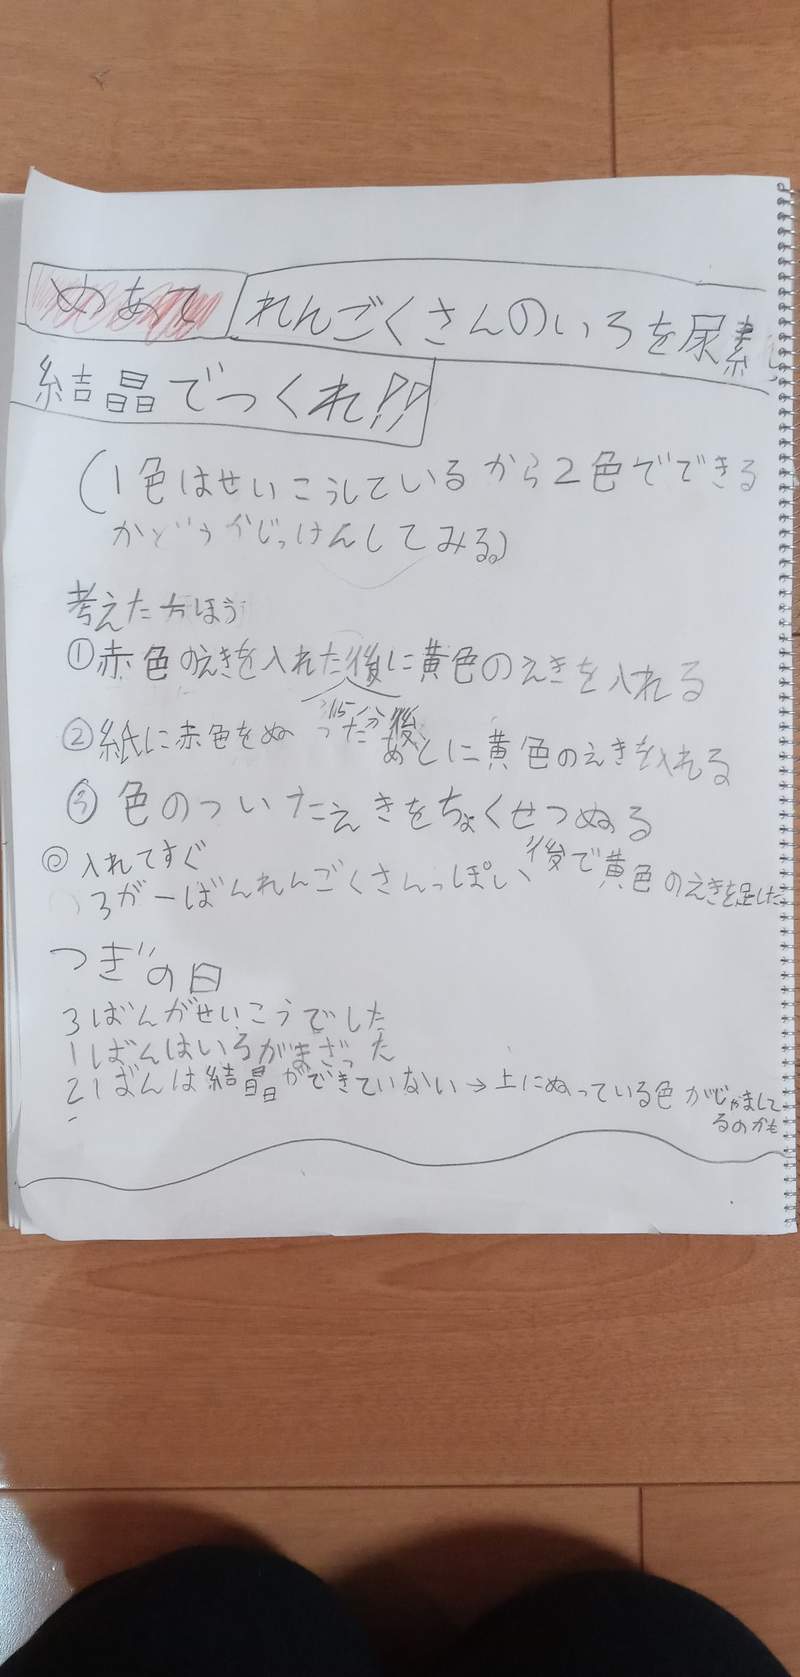 めあて れんごくさんのいろを尿素
結晶でつくれ!!
(1色はせいこうしているから2色でできる
かどうかじっけんしてみる。)
考えた方ほう
①赤色のえきを入れた後に黄色のえきを入れる
15分後
②紙に赤色をぬったあとに黄色のえきを入れる
③色のついたえきをちょくせつぬる
◎入れてすぐ
3が一ばんれんごくさんっぽい、後で黄色のえきを足した
つぎの日
3ばんがせいこうでした
1ばんはいろがまざった
2ばんは結晶ができていない→上にぬっている色がじゃまして
るのかも